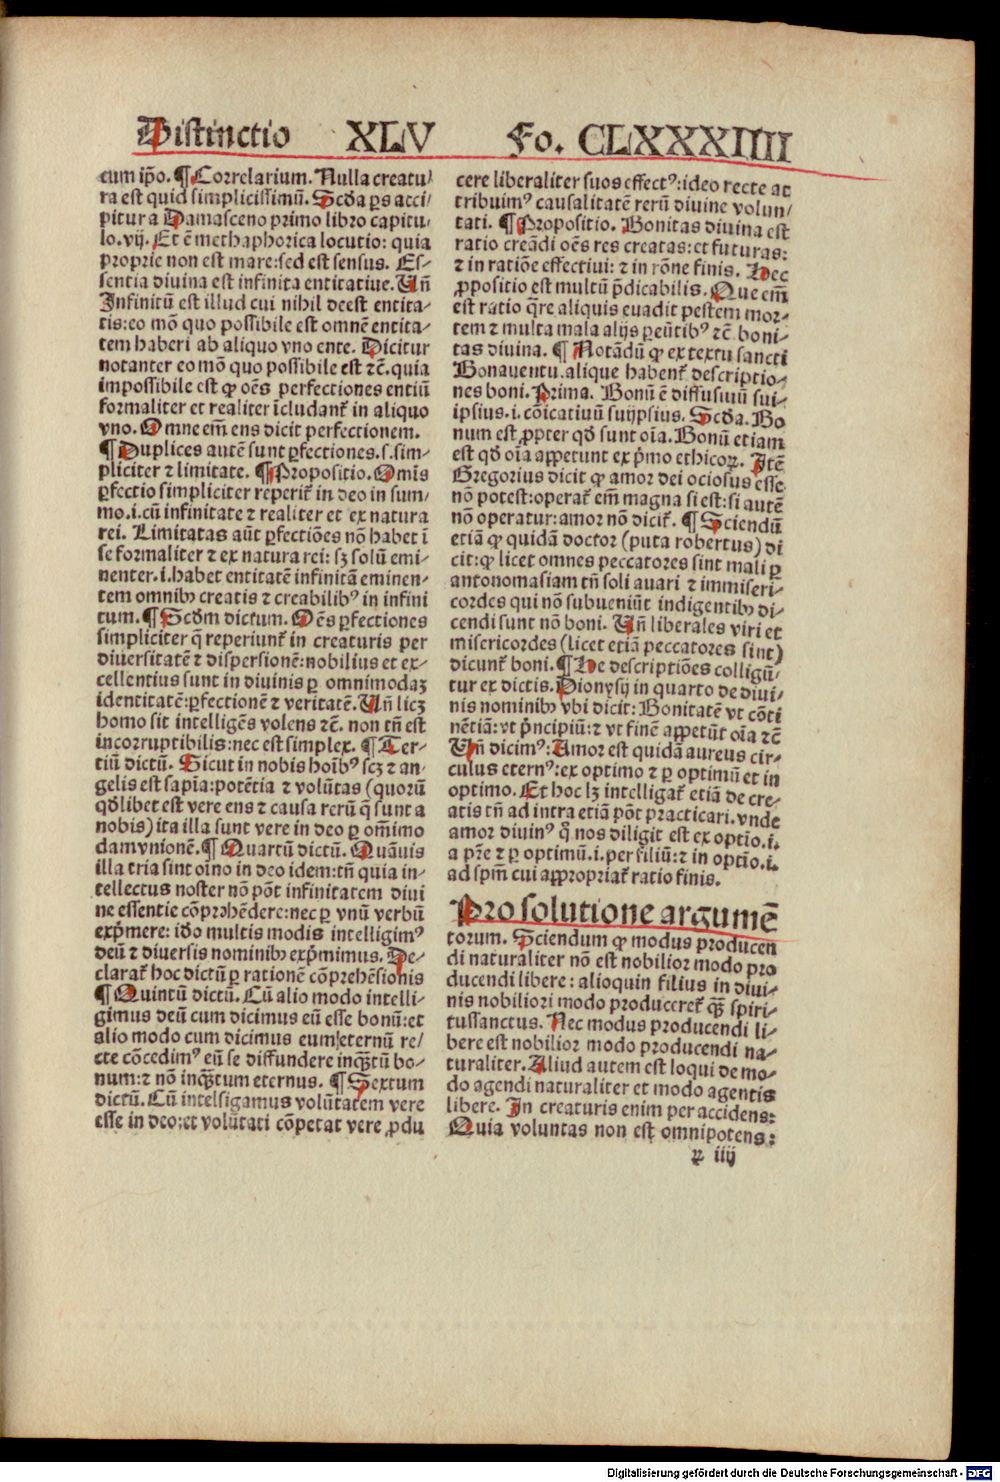 Distinctio XLV Fo. CLXXXIIII
cum ip̄o. ¶ Correlarium. Nulla creatu⸗
ra est quid simplicissimū. Scd̄a ꝑs acci⸗
pitur a Damasceno primo libro capitu⸗
lo. vij. Et ē methaphorica locutio: quia
proprie non est mare: sed est sensus. Es⸗
sentia diuina est infinita entitatiue. Un̄
Infinitū est illud cui nihil deest entita⸗
tis: eo mō quo possibile est omnē entita⸗
tem haberi ab aliquo vno ente. Dicitur
notanter eo mō quo possibile est ⁊c̄. quia
impossibile est ꝙ oēs perfectiones entiū
formaliter et realiter īcludant᷑ in aliquo
vno. Omne em̄ ens dicit perfectionem.
¶ Duplices autē sunt ꝑfectiones. s. sim⸗
pliciter ⁊ limitate. ¶ Propositio. Om̄is
ꝑfectio simpliciter reperit᷑ in deo in sum⸗
mo. i. cū infinitate ⁊ realiter et ex natura
rei. Limitatas aūt ꝑfectiōes nō habet ī
se formaliter ⁊ ex natura rei: sꝫ solū emi⸗
nenter. i. habet entitatē infinitā eminen⸗
tem omnibꝫ creatis ⁊ creabilibꝰ in infini
tum. ¶ Scd̄m dictum. Oēs ꝑfectiones
simpliciter q̄ reperiunt᷑ in creaturis per
diuersitatē ⁊ dispersionē: nobilius et ex⸗
cellentius sunt in diuinis ꝑ omnimodaꝫ
identitatē: ꝑfectionē ⁊ veritatē. Un̄ licꝫ
homo sit intelligēs volens ⁊c̄. non tn̄ est
incorruptibilis: nec est simplex. ¶ Ter⸗
tiū dictū. Sicut in nobis hoībꝰ scꝫ ⁊ an⸗
gelis est sapīa: potētia ⁊ volūtas (quorū
qd̄libet est vere ens ⁊ causa rerū q̄ sunt a
nobis) ita illa sunt vere in deo ꝑ om̄imo
dam vnionē. ¶ Quartū dictū. Quāuis
illa tria sint oīno in deo idem: tn̄ quia in⸗
tellectus noster nō pōt infinitatem diui
ne essentie cōprehēdere: nec ꝑ vnū verbū
exp̄mere: iđo multis modis intelligimꝰ
deū ⁊ diuersis nominibꝫ exp̄mimus. De⸗
clarat᷑ hoc dictū ꝑ rationē cōprehēsionis
¶ Quintū dictū. Cū alio modo intelli⸗
gimus deū cum dicimus eū esse bonū: et
alio modo cum dicimus eum eternū re⸗
cte cōcedimꝰ eū se diffundere inqᷓ̄tū bo⸗
num: ⁊ nō inqᷓ̄tum eternus. ¶ Sextum
dictū. Cū intelsigamus volūtatem vere
esse in deo: et volūtati cōpetat vere ꝓdu
cere liberaliter suos effectꝰ: ideo recte at
tribuimꝰ causalitatē rerū diuine volun⸗
tati. ¶ Propositio. Bonitas diuina est
ratio creādi oēs res creatas: et futuras:
⁊ in ratiōe effectiui: ⁊ in rōne finis. Hec
ꝓpositio est multū p̄dicabilis. Que em̄
est ratio q̄re aliquis euadit pestem mor⸗
tem ⁊ multa mala alijs ꝑeūtibꝰ ⁊c̄. boni⸗
tas diuina. ¶ Notādū ꝙ ex textu sancti
Bonauentu. alique habent᷑ descriptio⸗
nes boni. Prima. Bonū ē diffusiuū sui⸗
ipsius. i. cōicatiuū suijpsius. Scd̄a. Bo
num est ꝓpter qd̄ sunt oīa. Bonū etiam
est qd̄ oīa appetunt ex p̄mo ethicoꝝ. Itē
Gregorius dicit ꝙ amor dei ociosus esse
nō potest: operat᷑ em̄ magna si est: si autē
nō operatur: amor nō dicit᷑. ¶ Sciendū
etiā ꝙ quidā doctor (puta robertus) di
cit: ꝙ licet omnes peccatores sint mali ꝑ
antonomasiam tn̄ soli auari ⁊ immiseri⸗
cordes qui nō subueniūt indigentibꝫ di⸗
cendi sunt nō boni. Un̄ liberales viri et
misericordes (licet etiā peccatores sint)
dicunt᷑ boni. ¶ He descriptiōes colligū⸗
tur ex dictis. Dionysij in quarto de diui⸗
nis nominibꝫ vbi dicit: Bonitatē vt cōti
nētiā: vt p̄ncipiū: ⁊ vt finē appetūt oīa ⁊c̄
Un̄ dicimꝰ: Amor est quidā aureus cir⸗
culus eternꝰ: ex optimo ⁊ ꝑ optimū et in
optimo. Et hoc lꝫ intelligat᷑ etiā de cre⸗
atis tn̄ ad intra etiā pōt practicari. vnde
amor diuinꝰ q̄ nos diligit est ex optīo. i.
a pr̄e ⁊ ꝑ optimū. i. per filiū: ⁊ in optīo. i.
ad spm̄ cui appropriat᷑ ratio finis.
Pro solutione argumē
torum. Sciendum ꝙ modus producen
di naturaliter nō est nobilior modo pro
ducendi libere: alioquin filius in diui⸗
nis nobiliori modo produceret᷑ qᷓ̄ spiri⸗
tussanctus. Nec modus producendi li⸗
bere est nobilior modo producendi na⸗
turaliter. Aliud autem est loqui de mo⸗
do agendi naturaliter et modo agentis
libere. In creaturis enim per accidens:
Quia voluntas non est omnipotens:
ꝑ iiij
Digitalisierung gefördert durch die Deutsche Forschungsgemeinschaft - DFG